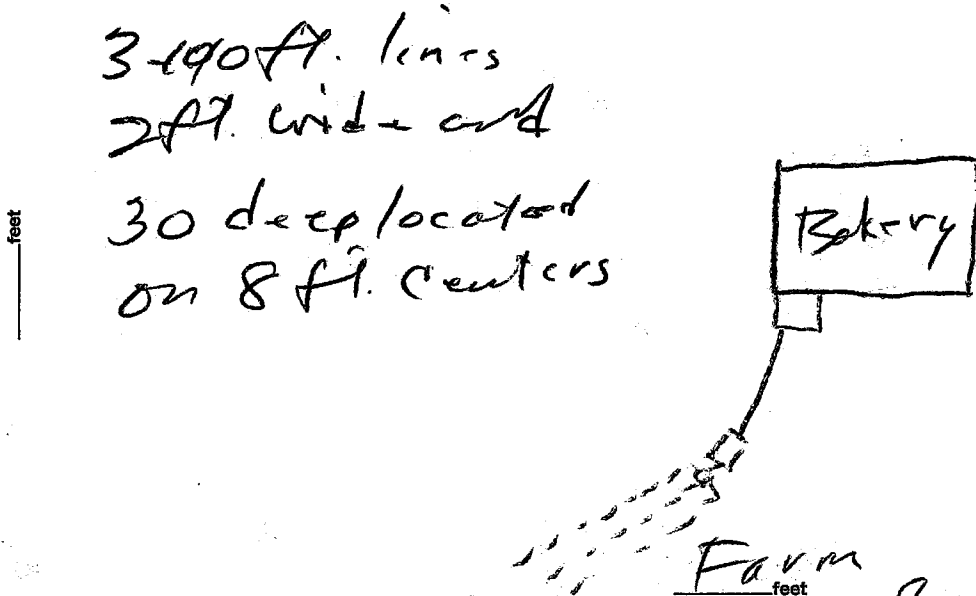 3-190 ft. lines
2 ft. wide and
30 deep located
on 8 ft. Centers
feet
Bakery
Farm
feet